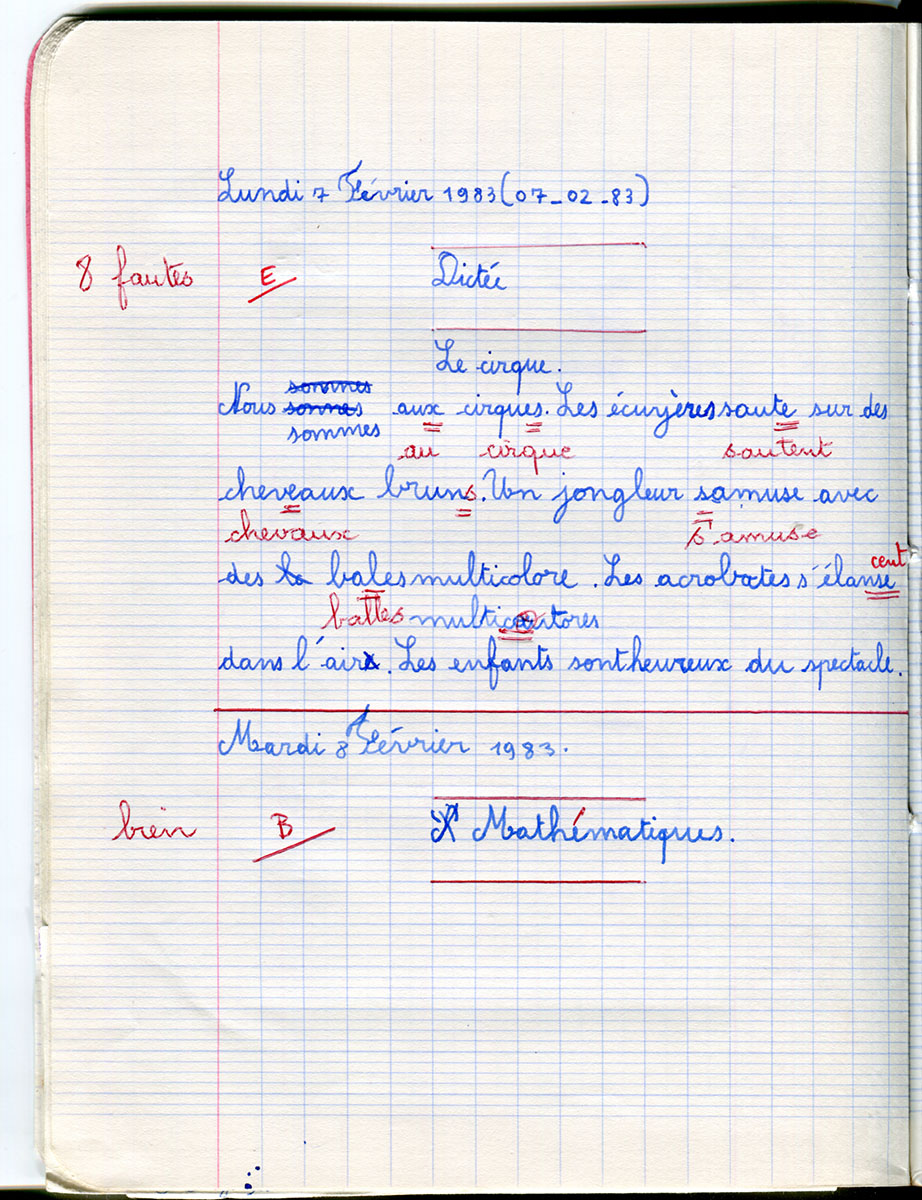 Lundi 7 Février 1983 (07_02_83)
8 fautes E Dictée
Le cirque.
sommes
Nous sonnes aux cirques. Les écuyères saute sur des
sommes au cirque sautent
cheveaux bruns. Un jongleur samuse avec
chevaux s'amuse
cent
des la bales multicolore. Les acrobates s'élanse
balles multicolores
dans l'air. Les enfants sont heureux du spectacle.
Mardi 8 Février 1983.
bien B Mathématiques.